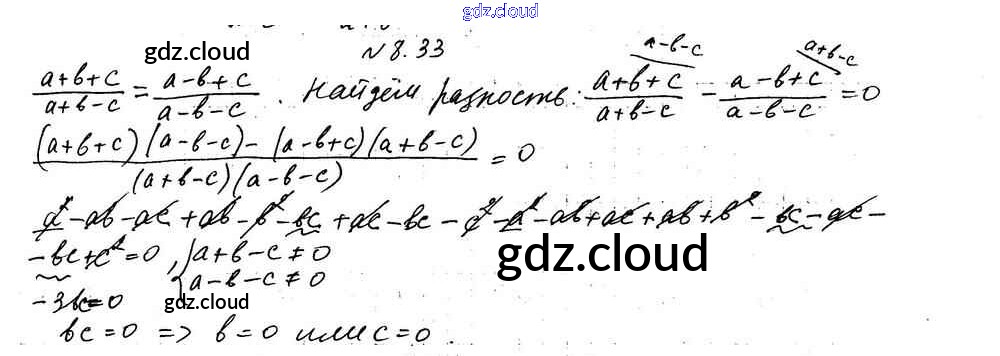 gdz.cloud
№ 8.33
gdz.cloud
(a+b+c)/(a+b-c) = (a-b+c)/(a-b-c). Найдём разность: (a+b+c)/(a+b-c) - (a-b+c)/(a-b-c) = 0
a-b-c a+b-c
((a+b+c)(a-b-c) - (a-b+c)(a+b-c))/((a+b-c)(a-b-c)) = 0
a² - ab - ac + ab - b² - bc + ac - bc - c² - a² - ab + ac + ab + b² - bc - ac -
- bc + c² = 0, { a+b-c ≠ 0
a-b-c ≠ 0
gdz.cloud
- 3bc = 0
gdz.cloud
bc = 0 => b = 0 или c = 0.